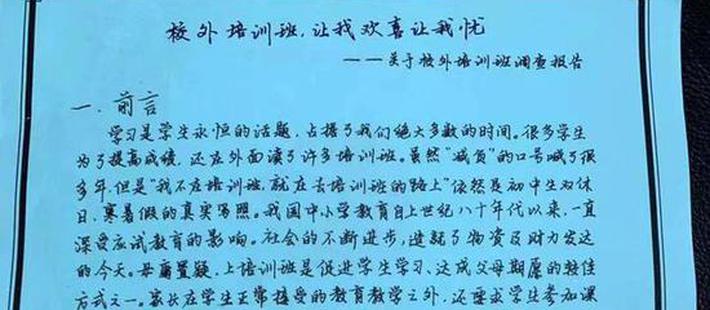 校外培训班,让我欢喜让我忧
——关于校外培训班调查报告
一.前言
学习是学生永恒的话题,占据了我们绝大多数的时间。很多学生
为了提高成绩,还在外面读了许多培训班。虽然"减负"的口号喊了很
多年,但是"我不在培训班,就在去培训班的路上"依然是初中生双休
日、寒暑假的真实写照。我国中小学教育自上世纪八十年代以来,一直
深受应试教育的影响。社会的不断进步,造就了物资及财力发达
的今天。毋庸置疑,上培训班是促进学生学习、达成父母期愿的较佳
方式之一。家长在学生正常接受的教育教学之外,还要求学生参加课